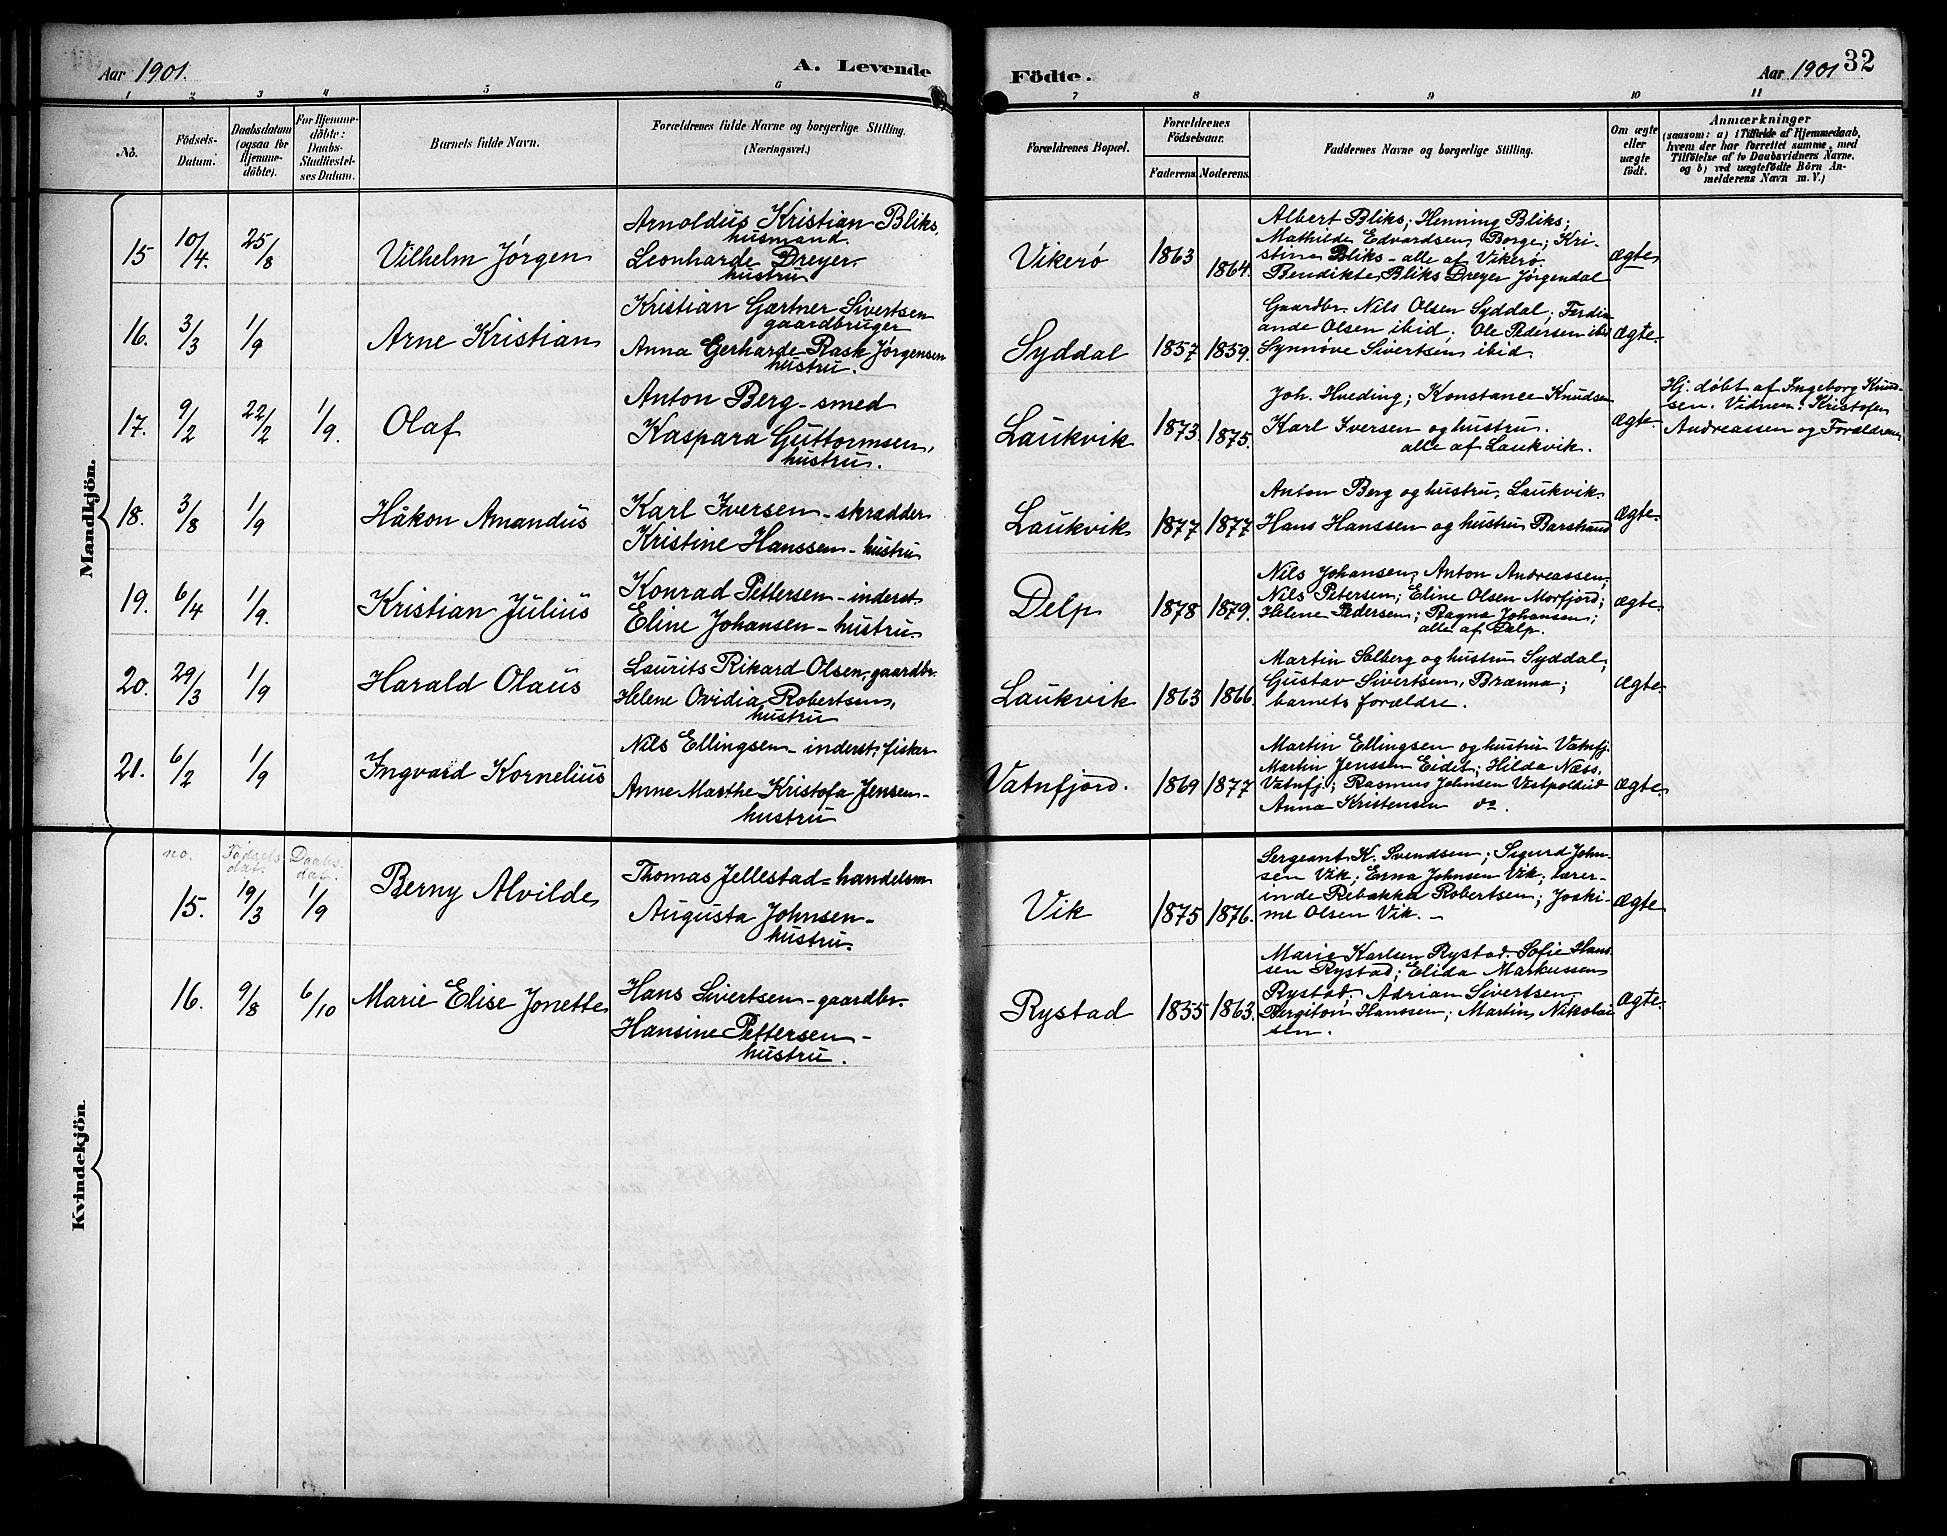 Aar 1901.
A. Levende
Födte.
Aar 1901
32
1 2 3 4 5 6 7 8 9 10 11
No.
Födsels-
Datum.
Daabsdatum
(ogsaa for
Hjemme-
döbte).
For Hjemme-
döbte:
Daabs-
Stadfæstel-
ses Datum.
Barnets fulde Navn.
Forældrenes fulde Navne og borgerlige Stilling.
(Næringsvei.)
Forældrenes Bopæl.
Forældrenes
Födselsaar.
Faderens. Moderens.
Faddernes Navne og borgerlige Stilling.
Om ægte
eller
uægte
født.
Anmærkninger
(saasom: a) i Tilfælde af Hjemmedaab,
hvem der har forrettet samme, med
Tilföielse af to Daabsvidners Navne,
og b) ved uægtefödte Börn An-
melderens Navn m. V.)
Mandkjön.
15 10/4. 25/8 Vilhelm Jørgen
Arnoldus Kristian Bliks,
husmand.
Leonharde Dreyer
hustru
Vikerø 1863 1864.
Albert Bliks; Henning Bliks;
Mathilde Edvardsen, Borge; Kri-
stine Bliks - alle af Vikerø.
Bendikte Bliks Dreyer Jørgendal
ægte
16. 3/3 1/9 Arne Kristian
Kristian Gartner Sivertsen
gaardbruger
Anna Gerharde Rask Jørgensen
hustru.
Syddal 1857 1859.
Gaardbr. Nils Olsen Syddal; Ferdin
ande Olsen ibid. Ole Pedersen ibid
Synnøve Sivertsen ibid.
ægte
17. 9/2 22/2 1/9. Olaf
Anton Berg - smed
Kaspara Guttormsen,
hustru.
Laukvik 1873. 1875.
Joh. Hveding; Konstance Knudsen
Karl Iversen og hustru.
alle af Laukvik.
ægte
Hj. døbt af Ingeborg Knud-
sen. Vidner: Kristofer
Andreassen og Forældrene
18. 3/8 1/9 Håkon Amandus
Karl Iversen - skrædder
Kristine Hanssen - hustru
Laukvik 1877 1877
Anton Berg og hustru, Laukvik.
Hans Hanssen og hustru Barstrand
ægte
19. 6/4 1/9. Kristian Julius
Konrad Pettersen - inderst
Eline Johansen - hustru
Delp 1878 1879.
Nils Johansen, Anton Andreassen,
Nils Petersen; Eline Olsen Morfjord;
Helene Pedersen; Ragna Johansen;
alle af Delp.
ægte
20. 29/3 1/9 Harald Olaus
Laurits Rikard Olsen, gaardbr.
Helene Ovidia Robertsen,
hustru
Laukvik 1863 1866.
Martin Solberg og hustru Syddal;
Gustav Sivertsen, Brænna;
barnets forældre.
ægte
21. 6/2 1/9 Ingvard Kornelius
Nils Ellingsen - inderst, fisker
Anne Marthe Kristofa Jensen -
hustru
Vatnfjord. 1869 1877
Martin Ellingsen og hustru Vatnfj.
Martin Jenssen Eidet; Hilda Næss,
Vatnfj; Rasmus Johnsen Vestpollid
Anna Kristensen do.
ægte
Kvindekjön.
no. Fødsels dat. Daabs. dat.
15. 19/3 1/9 Berny Alvilde
Thomas Jellestad - handelsm
Augusta Johnsen -
hustru
Vik 1875 1876.
Sergeant K. Svendsen; Sigurd John-
sen Vik; Erna Johnsen Vik; lærer-
inde Rebekka Robertsen; Joaki-
me Olsen Vik. -
ægte
16. 9/8 6/10 Marie Elise Jonette
Hans Sivertsen - gaardbr.
Hansine Pettersen -
hustru.
Rystad 1855 1863.
Marie Karlsen Rystad. Sofie Hans-
sen Rystad; Elida Markussen
Rystad; Adrian Sivertsen,
Bergiton Hanssen; Martin Nikolai
sen.
ægte